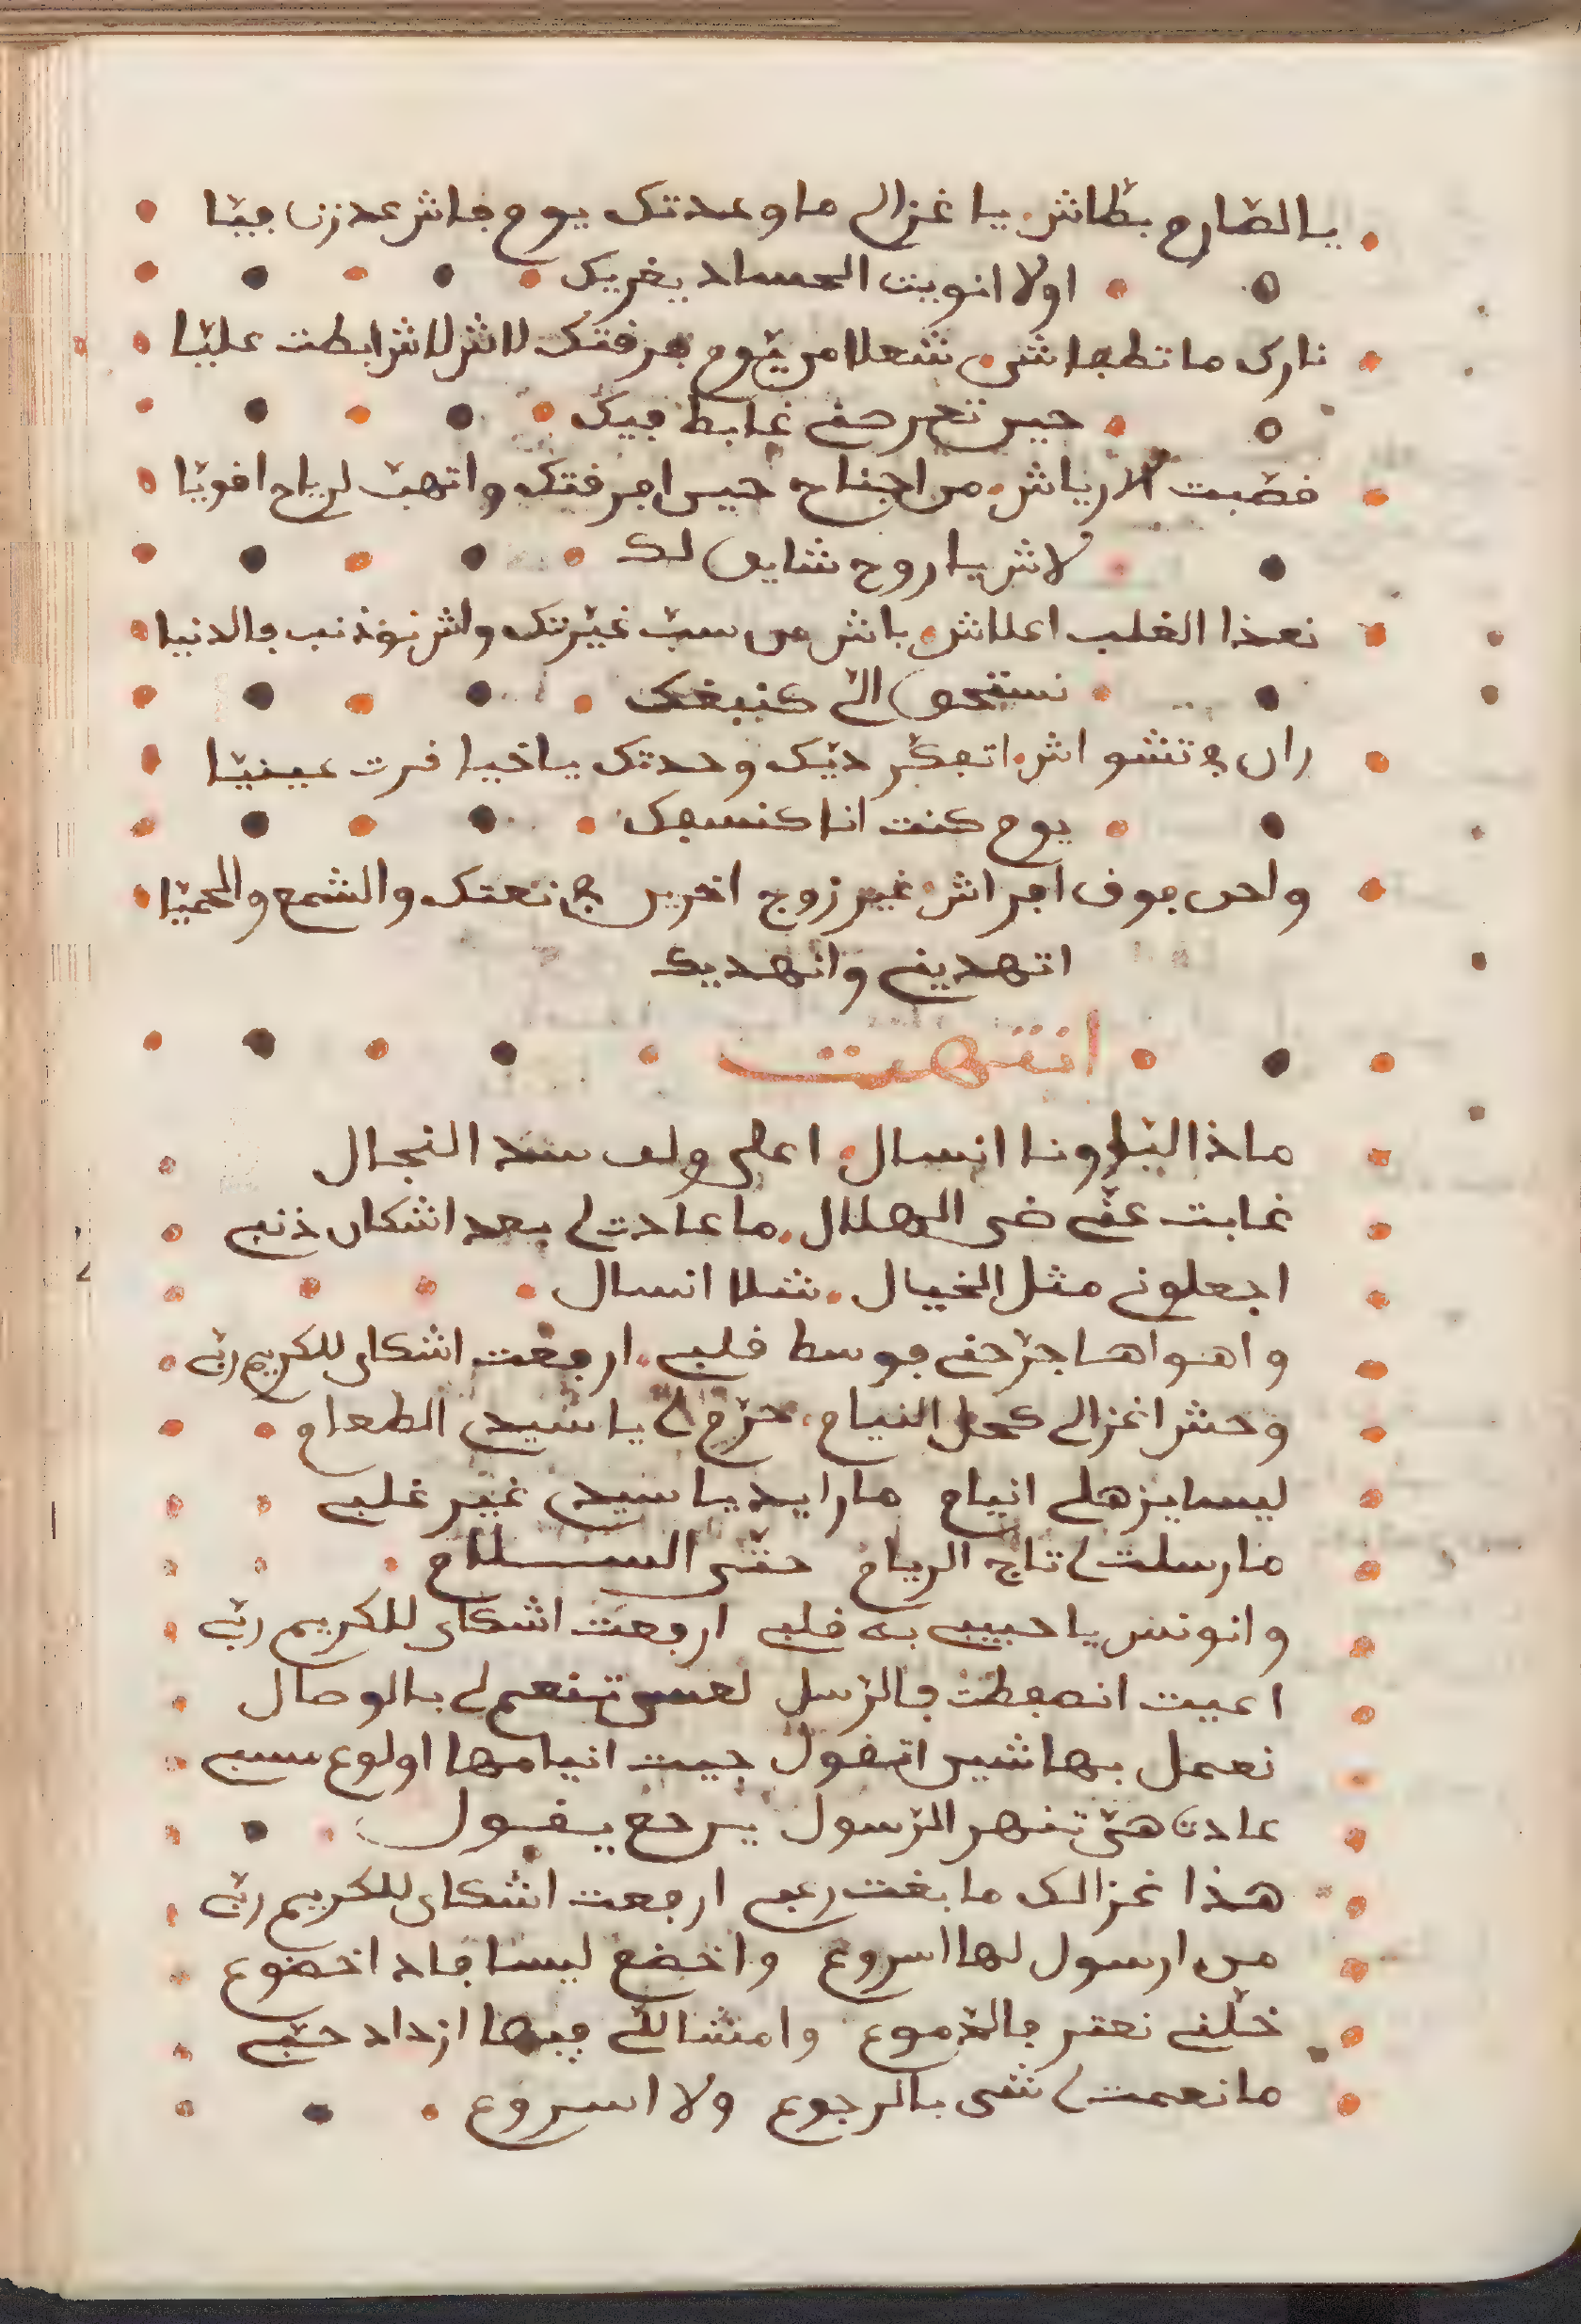 يا الصارم بطاش يا غزالي ما وعدتك يوم فاش عدزت فيا
اولا انويت الحساد يغريك
ناري ما تطفاشي شعلا من يوم فرقتك لاش لاش ابطت عليا
حين تحرحني غابط فيك
قصبت الارياش من اجناح حين افرقتك واتهب لرياح اقويا
لاش يا روح شاين لك
نعذا القلب اعلاش باش من سب غيرتك واش نوذنب فالدنيا
نستحق الي كنبغك
ران في تشواش اتفكر ديك وحدتك ياخيا قرت عينيا
يوم كنت انا كنسفك
واحن فوق افراش غير زوج اخرين في نعتك والشمع والحميا
اتهديني وانهديك
انتهت
ماذا اليا ونا انسال اعلى ولف سد النجال
غابت عني ضي الهلال ما عادت لي بعد اشكان ذنبي
اجعلوني مثل الخيال شلا انسال
واهواها جرحني فوسط قلبي ارفعت اشكاي للكريم ربي
وحش اغزالي كحل النيام حرم لي يا سيدي الطعام
ليسا يزهالي انيام ما رايد يا سيدي غير غلبي
ما رسلت لي تاج الريام حتى السلام
وانونس يا حبيبي به قلبي ارفعت اشكاي للكريم ربي
اعييت انصفطت فالرسل لعسى تنعم لي بالوصال
نعمل بها شين اتقول جيت انيامها اولوع سبي
عادت هي تنهر الرسول يرجع يقول
هذا غزالك ما بغت رعبي ارفعت اشكاي للكريم ربي
من ارسول لها اسروع واخضع ليسا فاد اخضوع
خلني نعتر فالدموع وامنشاللي فيها ازداد حبي
ما نعمت لي شي بالرجوع ولا اسروع